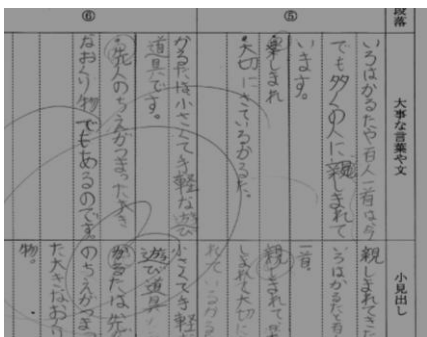 段落
大事な言葉や文
小見出し
⑤
いろはかるたや百人一首は今
でも多くの人に親しまれて
います。
楽しまれ
・大切にされているかるた。
親しまれてきた
いろはかるたと百人
一首。
親しまれて
しまれて大切に
れているかる
⑥
かるたは小さくて手軽な遊び
道具です。
・先人のちえがつまった大き
なおくり物でもあるのです。
小さくて手軽
遊び道具
かるたは、先
のちえがつまっ
た大きなおくり
物。